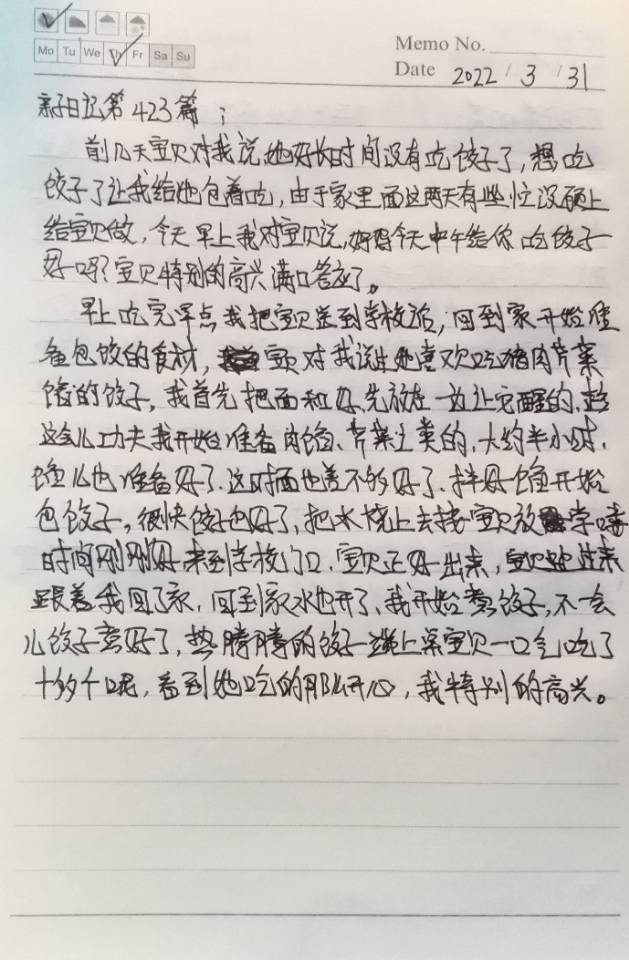 Mo Tu We Th Fr Sa Su
Memo No.
Date 2022 / 3 / 31
亲子日记第423篇；
前几天宝贝对我说她好长时间没有吃饺子了，想吃
饺子了让我给她包着吃，由于家里面这两天有些忙没顾上
给宝贝做，今天早上我对宝贝说，妈妈今天中午给你吃饺子
好吗？宝贝特别的高兴满口答应了。
早上吃完早点我把宝贝送到学校后，回到家开始准
备包饺的食材，宝贝对我说过她喜欢吃猪肉芹菜
馅的饺子，我首先把面和好，先放在一边让它醒的、趁
这会儿工夫我开始准备肉馅、芹菜之类的，大约半小时，
馅儿也准备好了、这时面也差不多好了、拌好馅开始
包饺子，很快饺子包好了，把水烧上去接宝贝放学喽
时间刚刚好来到学校门口，宝贝正好出来，宝贝跑过来
跟着我回了家，回到家水也开了、我开始煮饺子，不一会
儿饺子煮好了，热腾腾的饺子端上桌宝贝一口气吃了
十多个呢，看到她吃的那么开心，我特别的高兴。